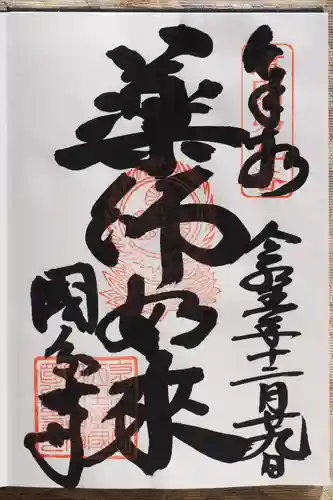 奉拝
令和五年十二月廿九日
薬師如来
国分寺